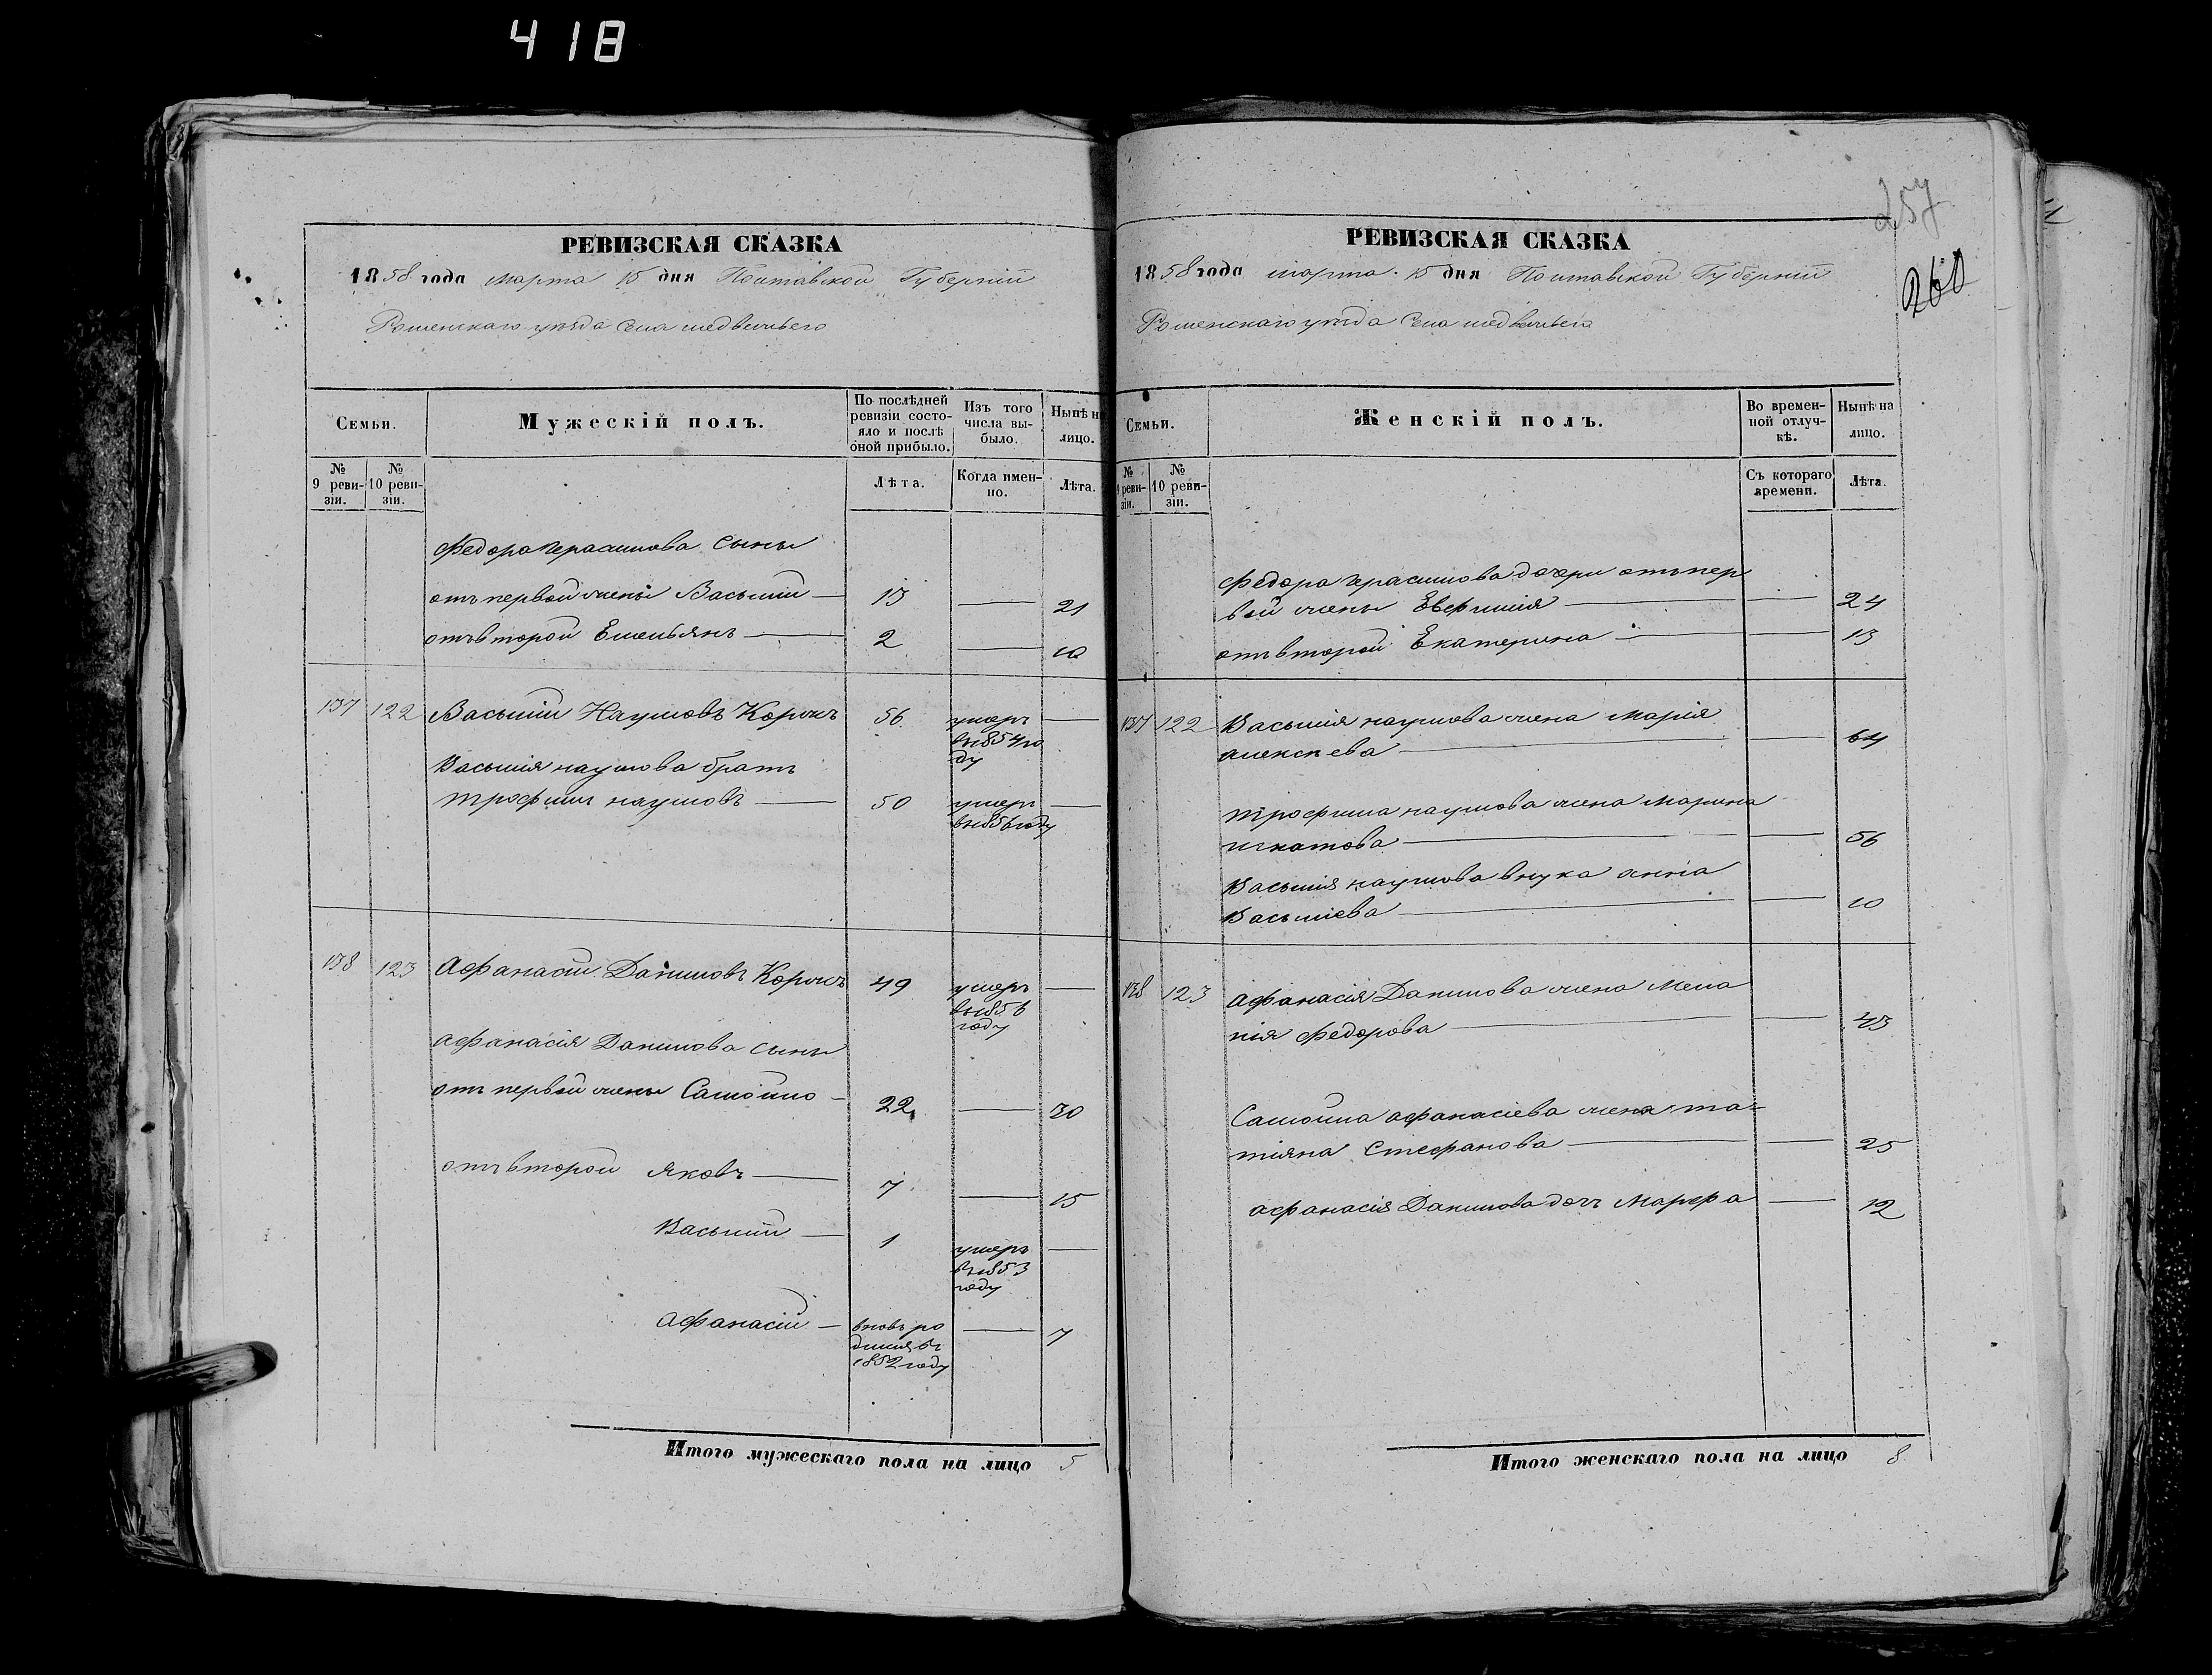 418
РЕВИЗСКАЯ СКАЗКА
1858 года марта 15 дня Полтавской Губерніи
Роменскаго уѣзда Села медвежьего
Семьи.
Мужескій полъ.
По послѣдней ревизіи состояло и послѣ оной прибыло.
Изъ того числа выбыло.
Нынѣ на лицо.
№ 9 ревизіи.
№ 10 ревизіи.
Лѣта.
Когда именно.
Лѣта.
Федора герасимова сыны
отъ первой жены Василій — 13 — 21
отъ второй Емельянъ — 2 — 10
137 122 Василій Наумовъ Коржъ 56 умеръ —
въ 1854 го
ду
Василія наумова братъ
трофимъ наумовъ — 50 умеръ —
въ 1856 году
138 123 Афанасій Даниловъ Коржъ 49 умеръ —
въ 1856
году
афанасія Данилова сыны
отъ первой жены Самойло — 22 — 30
отъ второй Яковъ — 7 — 15
Василій — 1 умеръ —
въ 1853
году
афанасій — вновь ро — 7
дился въ
1852 году
Итого мужескаго пола на лицо 5
257
260
РЕВИЗСКАЯ СКАЗКА
1858 года марта 15 дня Полтавской Губерніи
Роменскаго уѣзда Села медвежьего
Семьи.
Женскій полъ.
Во временной отлучкѣ.
Нынѣ на лицо.
№ 9 ревизіи.
№ 10 ревизіи.
Съ котораго времени.
Лѣта.
Федора герасимова дочери отъ пер
вой жены Евфимія — — 24
отъ второй Екатерина — — 13
137 122 Василія наумова жена Марія
алексѣева — — 64
трофима наумова жена Марина
игнатова — — 56
Василія наумова внука анна
Васильева — — 10
138 123 афанасія Данилова жена Мела
нія Федорова — — 43
Самойла афанасіева жена та=
тіяна Стефанова — — 25
афанасія Данилова дочь Марфа — 12
Итого женскаго пола на лицо 8